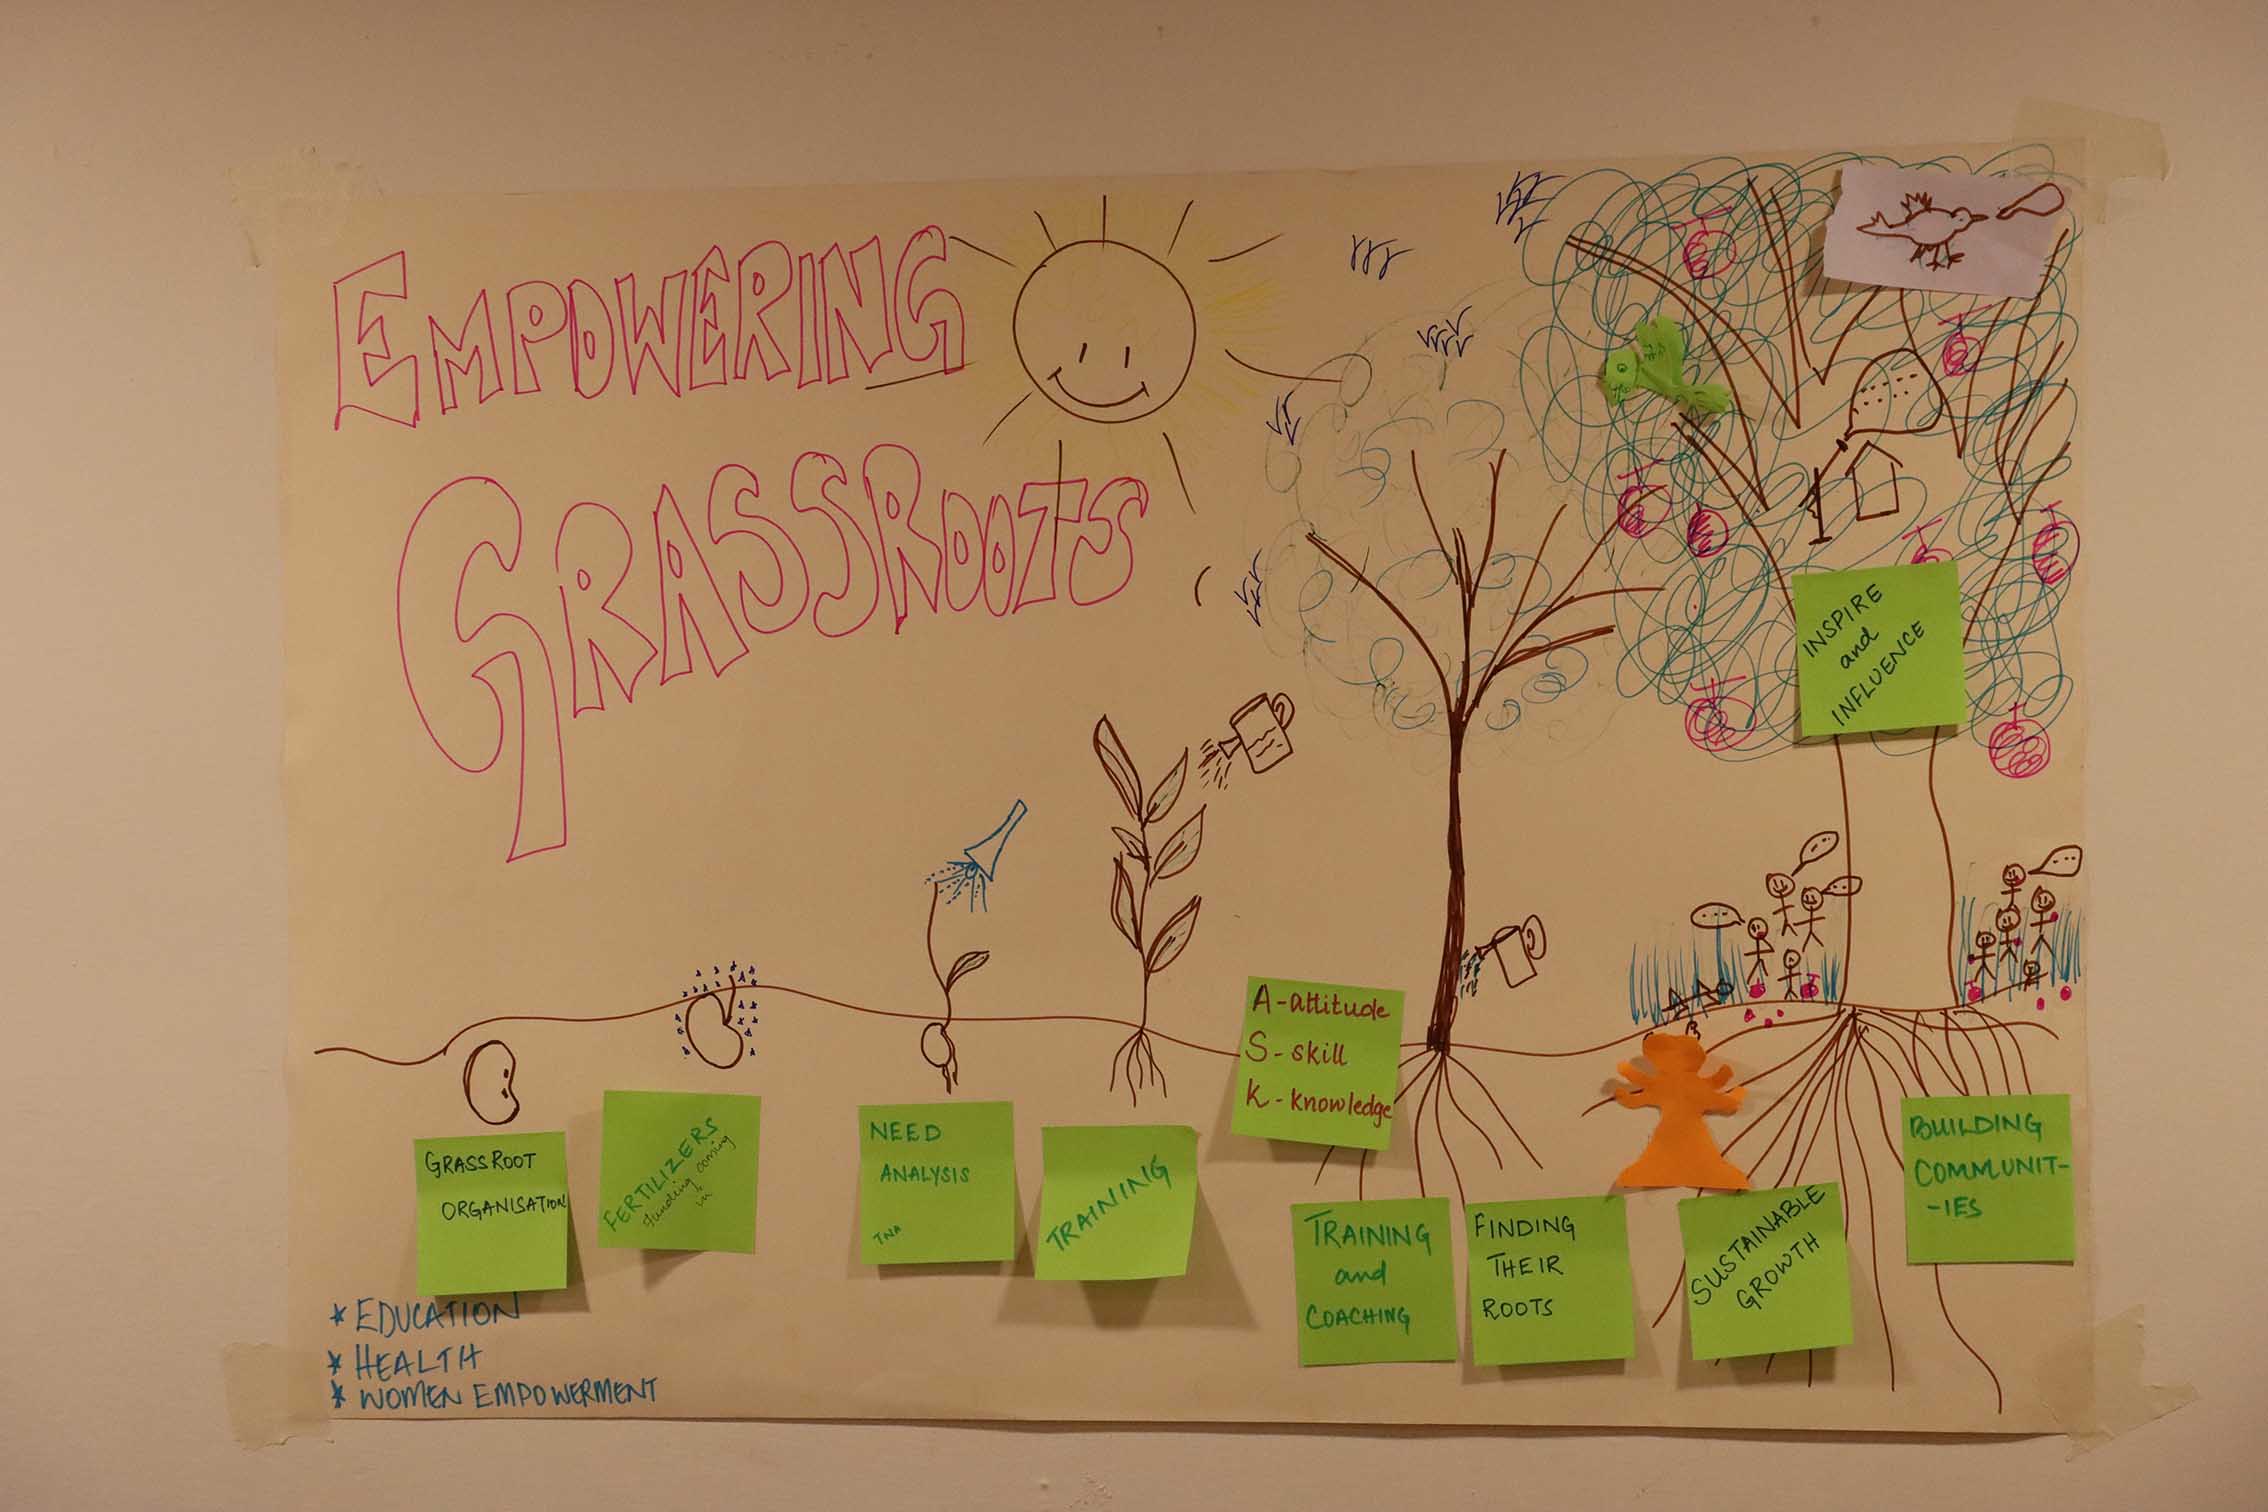 EMPOWERING
GRASSROOTS
INSPIRE
and
INFLUENCE
A-attitude
S-skill
K-knowledge
GRASSROOT
ORGANISATION
FERTILIZERS
funding coming
in
NEED
ANALYSIS
TNA
TRAINING
TRAINING
and
COACHING
FINDING
THEIR
ROOTS
SUSTAINABLE
GROWTH
BUILDING
COMMUNIT-
-IES
* EDUCATION
* HEALTH
* WOMEN EMPOWERMENT